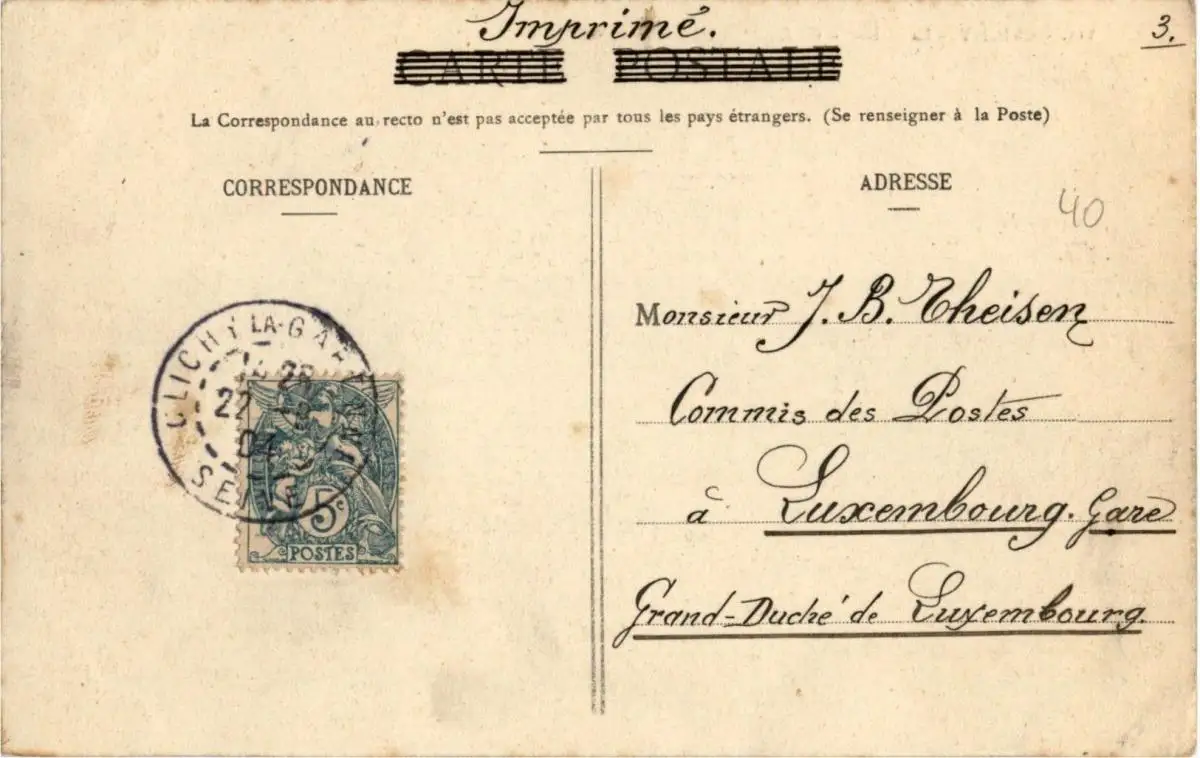 Imprimé.
3.
CARTE POSTALE
La Correspondance au recto n'est pas acceptée par tous les pays étrangers. (Se renseigner à la Poste)
CORRESPONDANCE
ADRESSE
40
Monsieur J. B. Theisen
Commis des Postes
à Luxembourg. Gare
Grand-Duché de Luxembourg.
CLICHY LA-GARENNE
22
04
SEINE
5c
POSTES